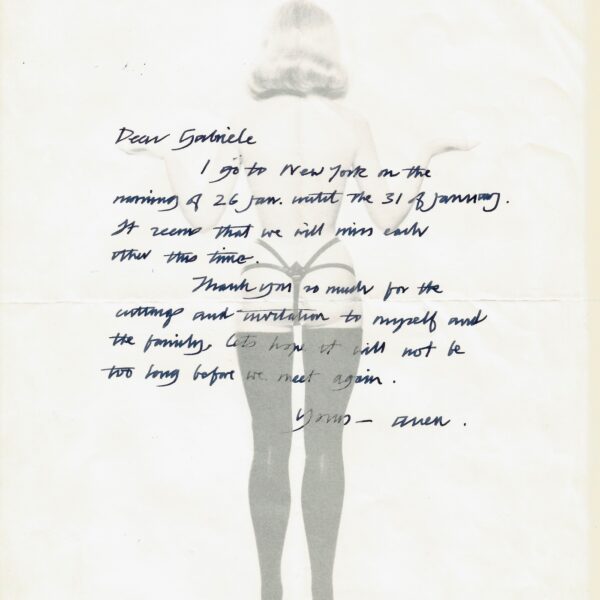 Dear Gabriele
I go to New York on the
morning of 26 Jan. until the 31 of January.
It seems that we will miss each
other this time.
Thank you so much for the
cuttings and invitation to myself and
the family, lets hope it will not be
too long before we meet again.
Yours – Allen.